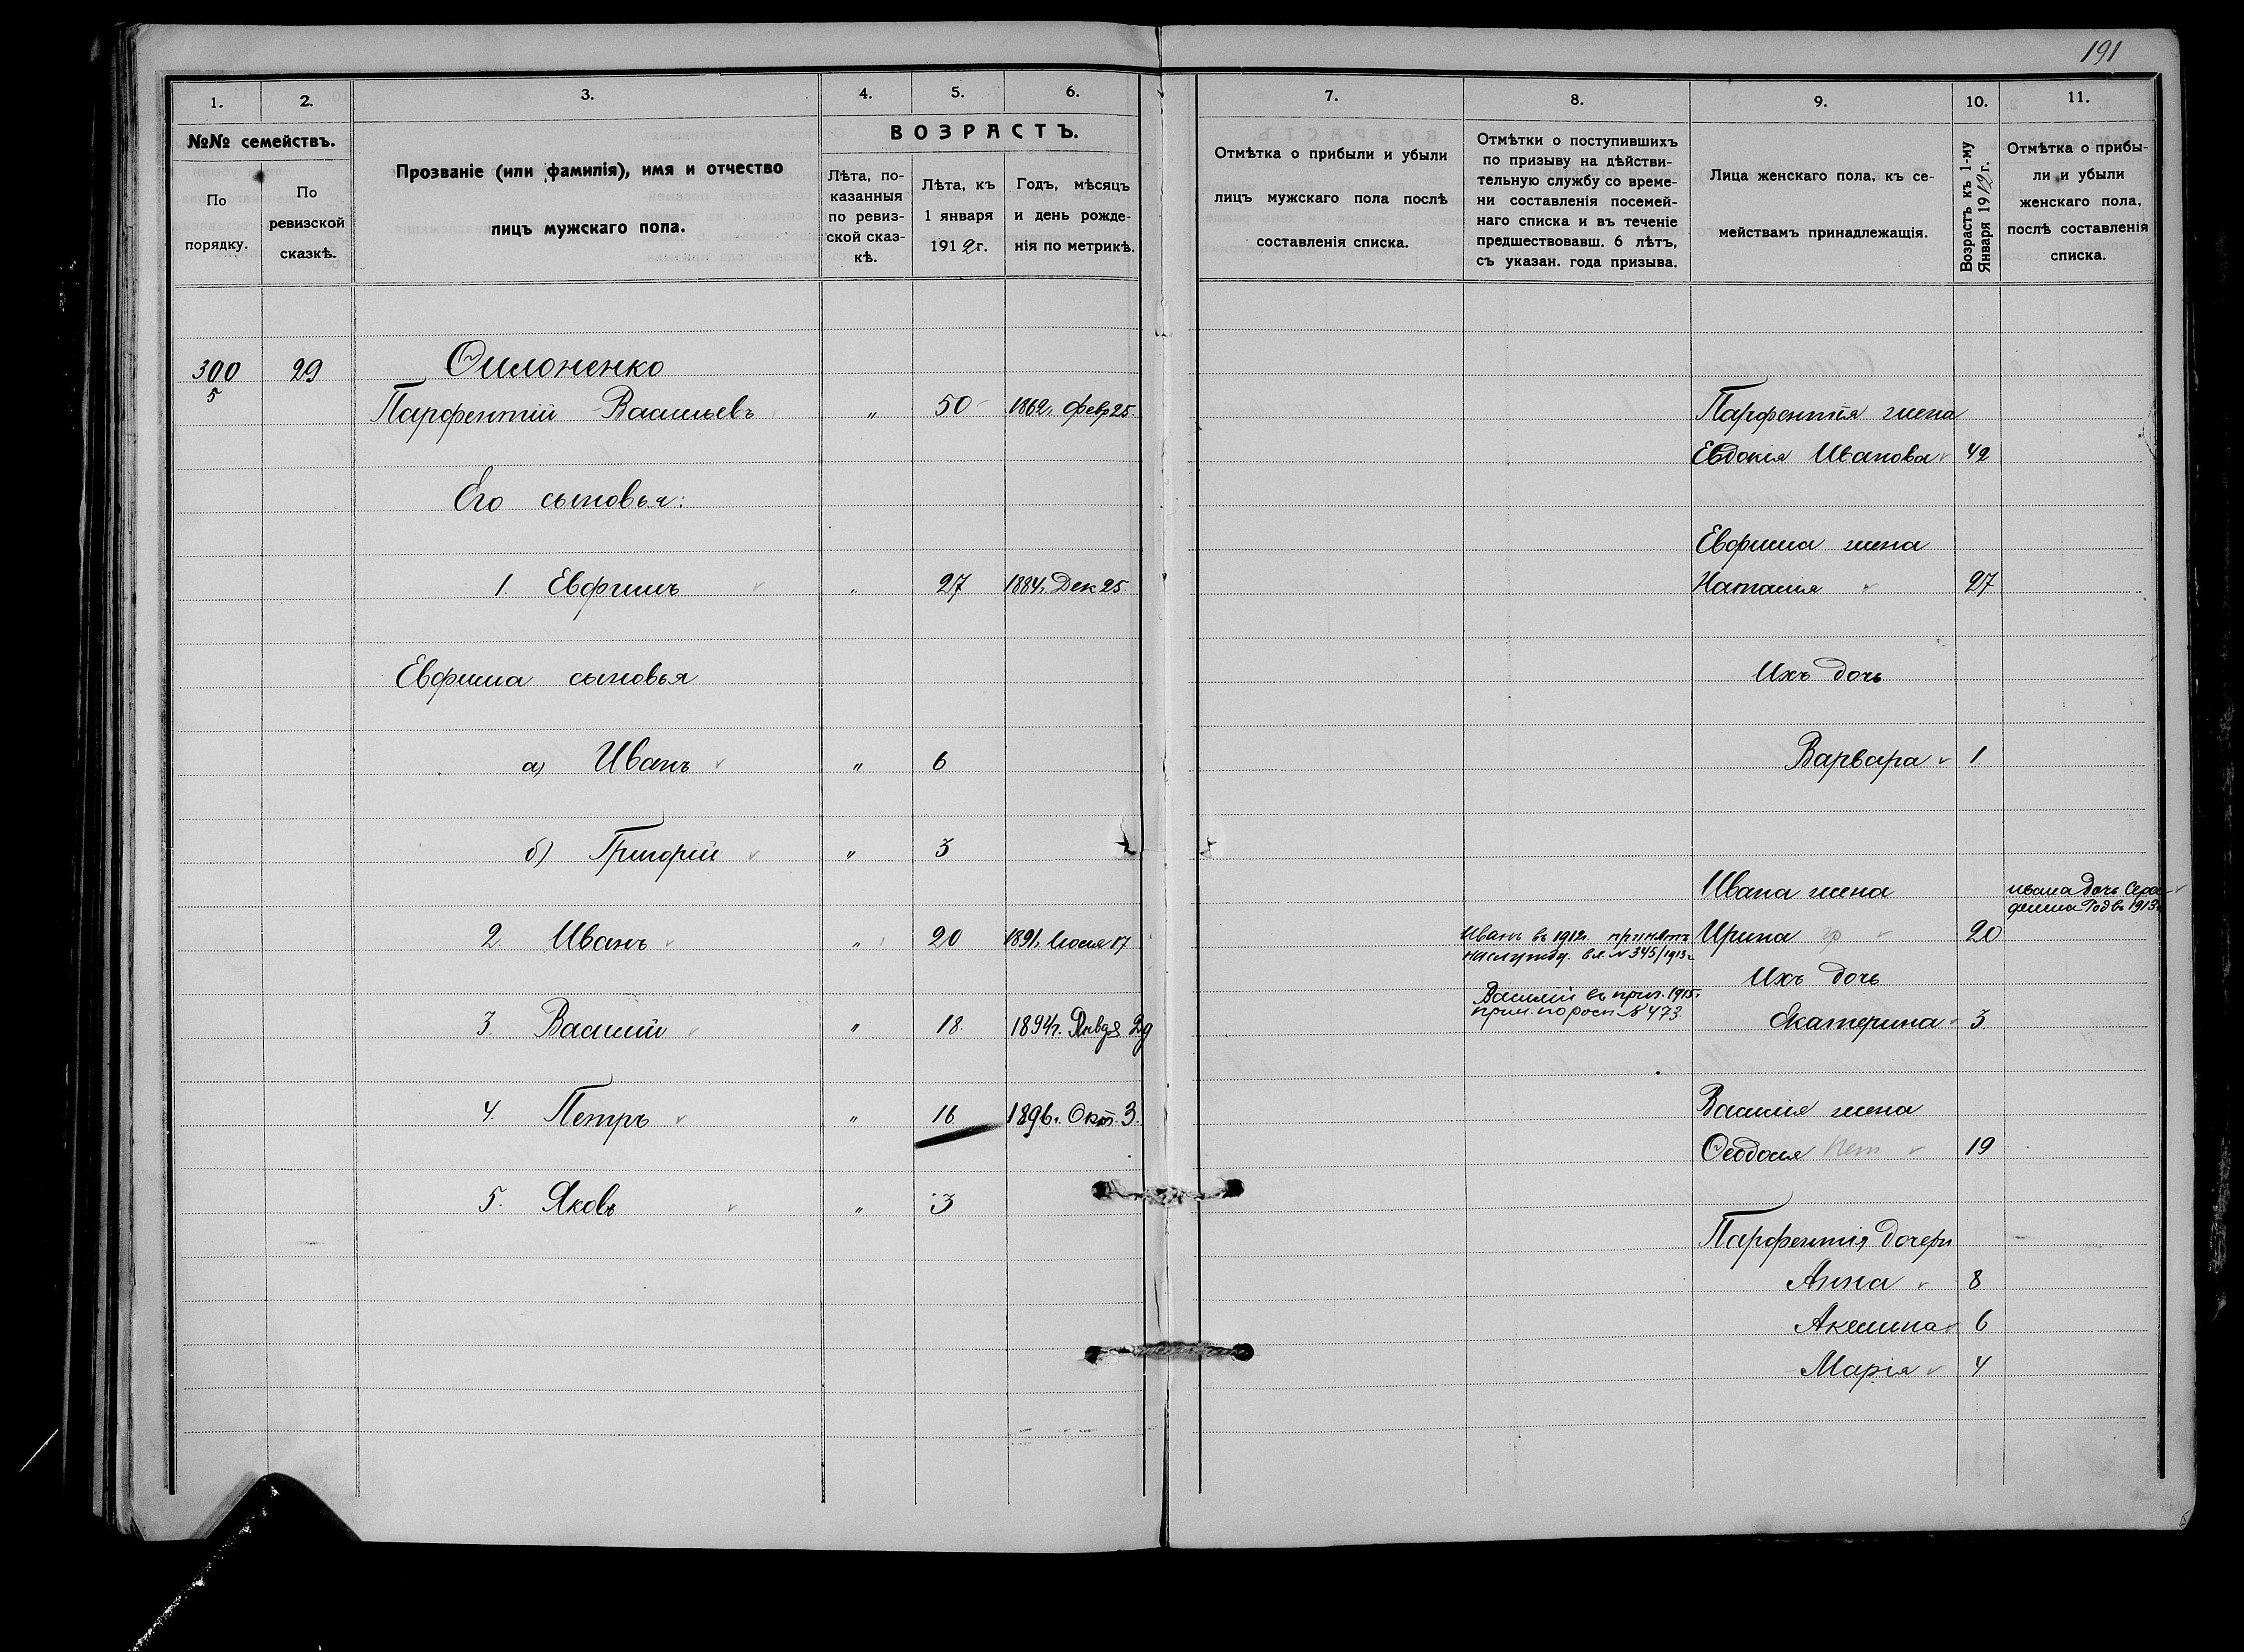 191
1.
2.
3.
4.
5.
6.
7.
8.
9.
10.
11.
№№ семействъ.
По порядку.
По ревизской сказкѣ.
Прозваніе (или фамилія), имя и отчество
лицъ мужскаго пола.
ВОЗРАСТЪ.
Лѣта, по-
казанныя
по ревиз-
ской сказ-
кѣ.
Лѣта, къ
1 января
1912 г.
Годъ, мѣсяцъ
и день рожде-
нія по метрикѣ.
Отмѣтка о прибыли и убыли
лицъ мужскаго пола послѣ
составленія списка.
Отмѣтки о поступившихъ
по призыву на дѣйстви-
тельную службу со време-
ни составленія посемей-
наго списка и въ теченіе
предшествовавш. 6 лѣтъ,
съ указан. года призыва.
Лица женскаго пола, къ се-
мействамъ принадлежащія.
Возрастъ къ 1-му
Января 1912 г.
Отмѣтка о прибы-
ли и убыли
женскаго пола,
послѣ составленія
списка.
300 29 Ѳилоненко
5
Парфентій Васильевъ " 50 1862г. Февр 25.
Его сыновья:
1. Евфимъ " 27 1884г. Дек 25.
Евфима сыновья
а) Иванъ " 6
б) Григорій " 3
2. Иванъ " 20 1891г. Іюля 17
3. Василій " 18. 1894г. Янвдя 29
4. Петръ " 16. 1896г. Окт. 3.
5. Яковъ " 3
Парфентія жена
Евдокія Иванова 42
Евфима жена
Наталія 27
Ихъ дочь
Варвара 1
Ивана жена
Ивана дочь Сера-
фима Род въ 1913г.
Иванъ въ 1912г. принятъ
на службу. вл. № 345/1913г.
Ирина 20
Ихъ дочь
Василій въ приз. 1915г.
прин. по росп № 473.
Екатерина 3
Василія жена
Ѳеодосія 19
Парфентія дочери
Анна 8
Акилина 6
Марія 4